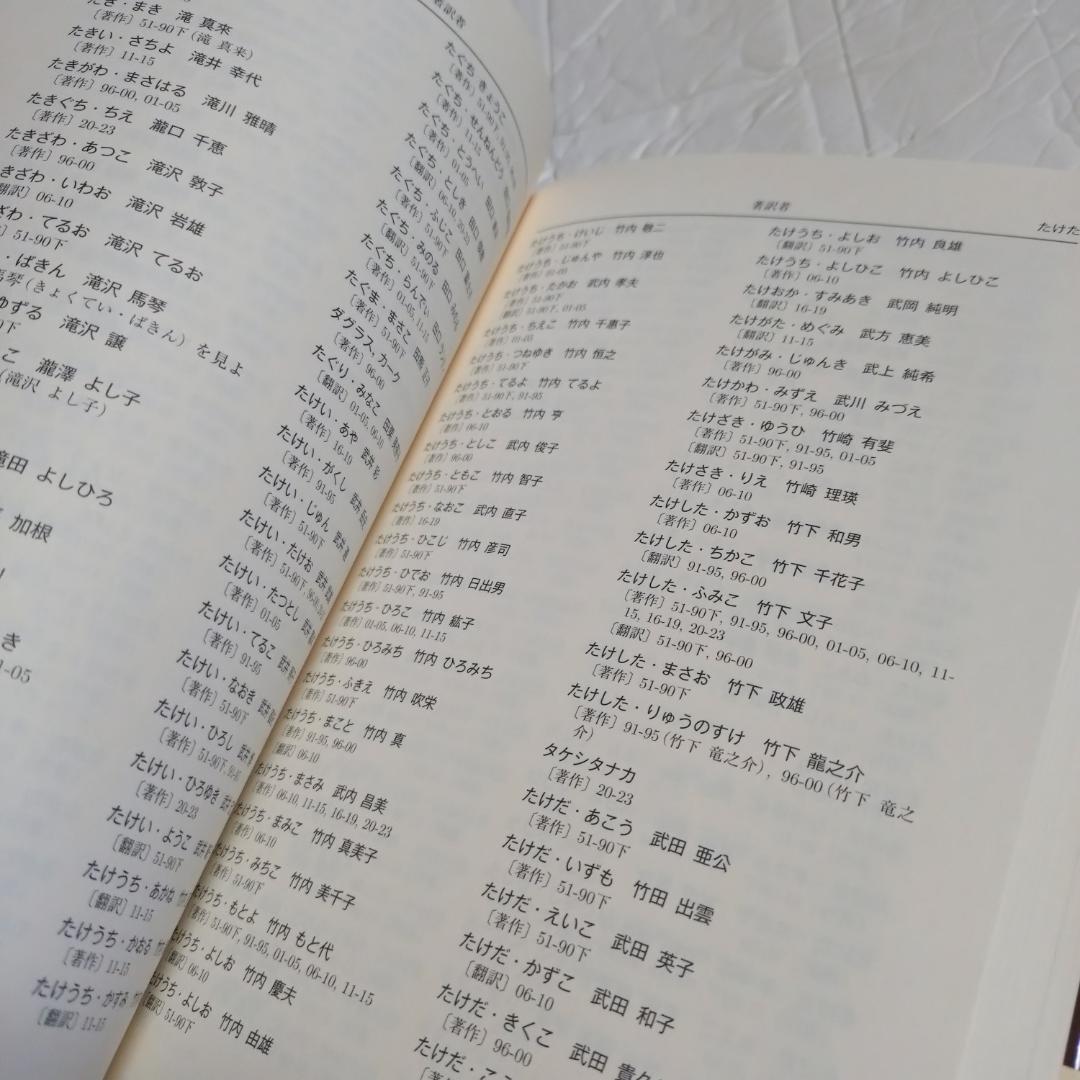 著訳者
たき・まき 滝 真来
[著作] 51-90下 (滝 真来)
たきい・さちよ 滝井 幸代
[著作] 11-15
たきがわ・まさはる 滝川 雅晴
[著作] 96-00, 01-05
たきぐち・ちえ 瀧口 千恵
[著作] 20-23
たきざわ・あつこ 滝沢 敦子
[著作] 96-00
きざわ・いわお 滝沢 岩雄
翻訳] 06-10
ざわ・てるお 滝沢 てるお
51-90下
・ばきん 滝沢 馬琴
馬琴 (きょくてい・ばきん) を見よ
ゆずる 滝沢 譲
0下
こ 瀧澤 よし子
(滝沢 よし子)
滝田 よしひろ
加根
き
1-05
たぐち・きょうこ
たぐち・せんねんどう
[著作] 11-15
たぐち・とうへい
[著作] 01-05
たぐち・としき
[翻訳] 06-10, 20-23
たぐち・ふじこ
[著作] 51-90下
たぐち・みのる
[翻訳] 51-90下
たぐち・らんでぃ
[著作] 01-05, 11-15
たぐま・まさこ
[著作] 51-90下
タグラス, カーク
[著作] 96-00
たぐり・みなこ
[翻訳] 01-05, 06-10
たけい・あや 武井 彩
[著作] 16-10
たけい・がくし
[著作] 91-95
たけい・じゅん
[著作] 51-90下
たけい・たけお
[著作] 51-90下, 96-00
たけい・たつとし
[著作] 01-05
たけい・てるこ
[著作] 91-95
たけい・なおき
[著作] 51-90下
たけい・ひろし
[著作] 51-90下, 91-95
たけい・ひろゆき
[著作] 20-23
たけい・ようこ
[翻訳] 51-90下
たけうち・あかね
[翻訳] 11-15
たけうち・かおる
[著作] 11-15
たけうち・かすみ
[翻訳] 11-15
著訳者
たけた
たけうち・けいじ 竹内 敬二
[著作] 51-90下
たけうち・じゅんや 竹内 淳也
[著作] 01-05
たけうち・たかお 武内 孝夫
[著作] 51-90下
[翻訳] 51-90下, 01-05
たけうち・ちえこ 竹内 千恵子
[著作] 01-05
たけうち・つねゆき 竹内 恒之
[著作] 51-90下
たけうち・てるよ 竹内 てるよ
[著作] 51-90下, 91-95
たけうち・とおる 竹内 亨
[著作] 06-10
たけうち・としこ 武内 俊子
[著作] 96-00
たけうち・ともこ 竹内 智子
[著作] 51-90下
たけうち・なおこ 武内 直子
[著作] 16-19
たけうち・ひこじ 竹内 彦司
[著作] 51-90下
たけうち・ひでお 竹内 日出男
[著作] 51-90下, 91-95
たけうち・ひろこ 竹内 紘子
[著作] 01-05, 06-10, 11-15
たけうち・ひろみち 竹内 ひろみち
[著作] 96-00
たけうち・ふきえ 竹内 吹栄
[著作] 51-90下
たけうち・まこと 竹内 真
[著作] 91-95, 96-00
[翻訳] 06-10
たけうち・まさみ 武内 昌美
[著作] 06-10, 11-15, 16-19, 20-23
たけうち・まみこ 竹内 真美子
[著作] 06-10
たけうち・みちこ 竹内 美千子
[著作] 51-90下
たけうち・もとよ 竹内 もと代
[著作] 51-90下, 91-95, 01-05, 06-10, 11-15
たけうち・よしお 竹内 慶夫
[翻訳] 06-10
たけうち・よしお 竹内 由雄
[著作] 51-90下
たけうち・よしお 竹内 良雄
[翻訳] 51-90下
たけうち・よしひこ 竹内 よしひこ
[著作] 06-10
たけおか・すみあき 武岡 純明
[翻訳] 16-19
たけがた・めぐみ 武方 恵美
[翻訳] 11-15
たけがみ・じゅんき 武上 純希
[著作] 96-00
たけかわ・みずえ 武川 みづえ
[著作] 51-90下, 96-00
たけざき・ゆうひ 竹崎 有斐
[著作] 51-90下, 91-95, 01-05
[翻訳] 51-90下, 91-95
たけさき・りえ 竹崎 理瑛
[著作] 06-10
たけした・かずお 竹下 和男
[著作] 06-10
たけした・ちかこ 竹下 千花子
[翻訳] 91-95, 96-00
たけした・ふみこ 竹下 文子
[著作] 51-90下, 91-95, 96-00, 01-05, 06-10, 11-
15, 16-19, 20-23
[翻訳] 51-90下, 96-00
たけした・まさお 竹下 政雄
[著作] 51-90下
たけした・りゅうのすけ 竹下 龍之介
[著作] 91-95 (竹下 竜之介), 96-00 (竹下 竜之
介)
タケシタナカ
[著作] 20-23
たけだ・あこう 武田 亜公
[著作] 51-90下
たけだ・いずも 竹田 出雲
[著作] 51-90下
たけだ・えいこ 武田 英子
[著作] 51-90下
たけだ・かずこ 武田 和子
[翻訳] 06-10
たけだ・きくこ 武田 貴久
[著作] 96-00